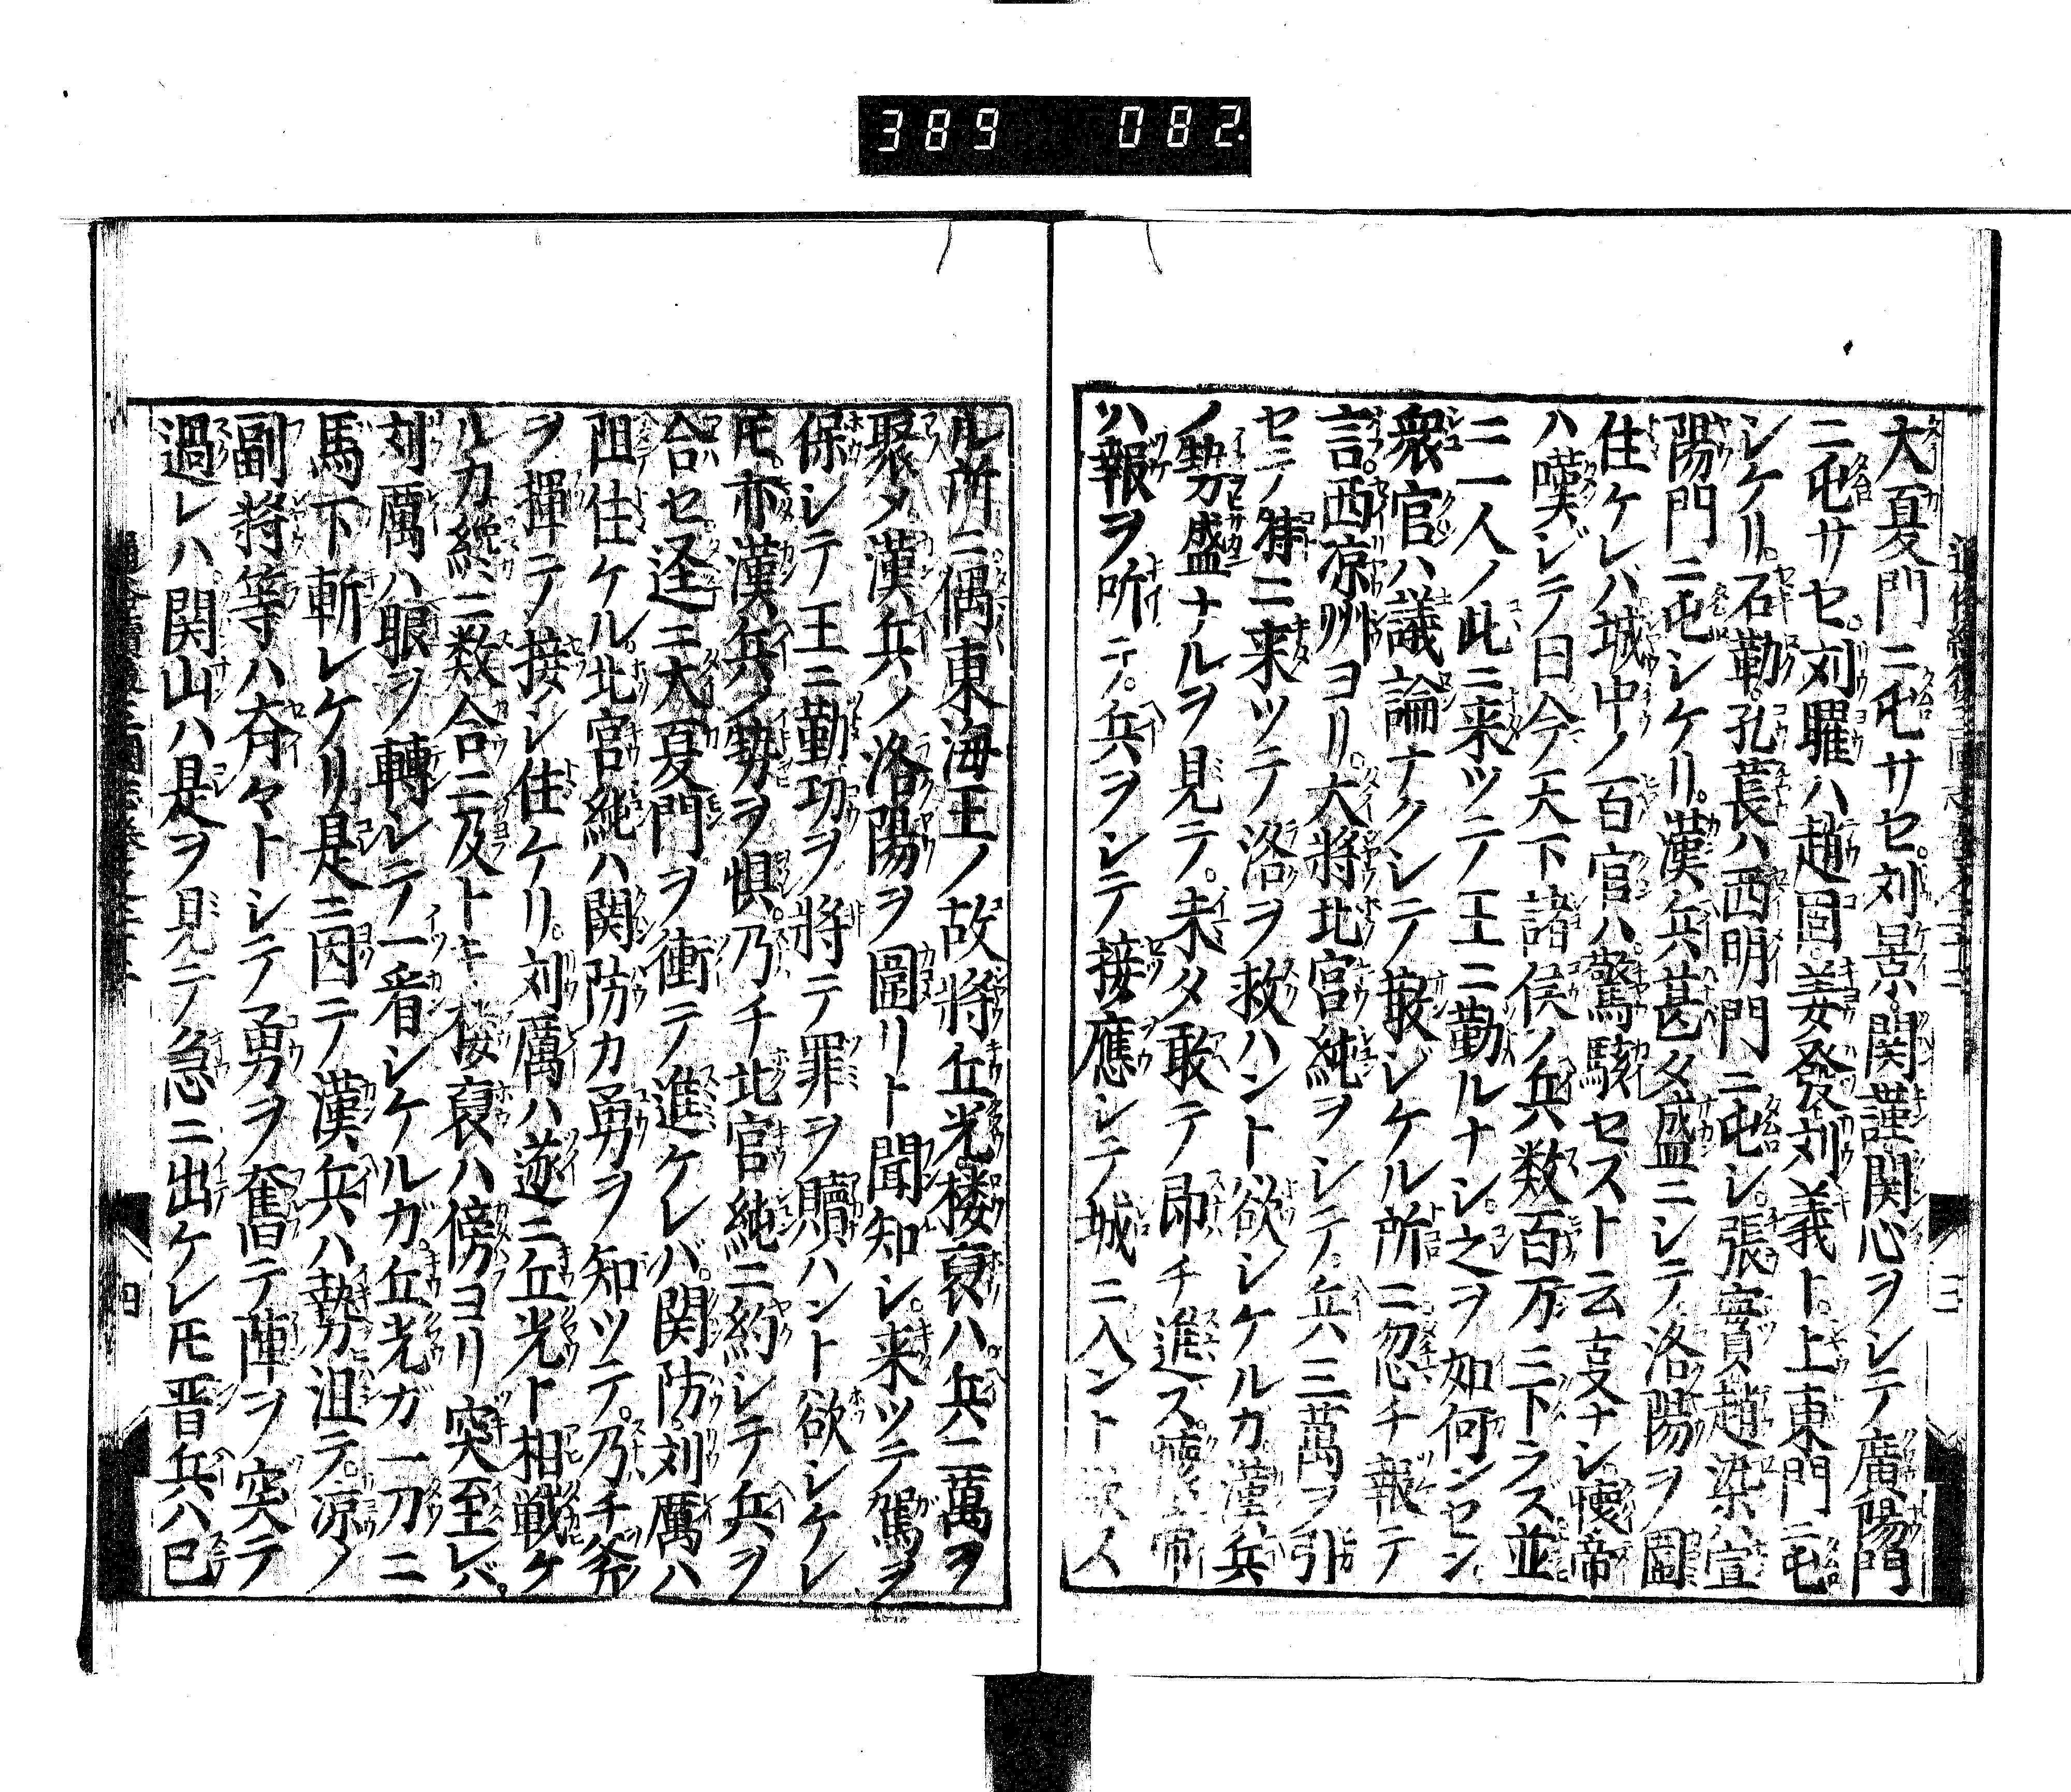 389 082
大夏門ニ屯サセ。刘景。関謹関心ヲシテ廣陽門
ニ屯サセ。刘曜ハ趙固。姜發刘義ト。上東門ニ屯
シケリ。石勒。孔萇ハ西明門ニ屯シ。張實趙染ハ宣
陽門ニ屯シケリ。漢兵甚タ盛ニシテ洛陽ヲ圍
住ケレバ城中ノ百官ハ。驚駭セズト云支ナシ懐帝
ハ嘆シテ曰今天下諸侯ノ兵数百万ニ下ラス並
ニ一人ノ此ニ来ツテノ王ニ勤ルナシ。之ヲ如何ンセン
衆官ハ議論ナクシテ散シケル所ニ忽チ報テ
言。西凉州ヨリ。大將北宮純ヲシテ。兵三萬ヲ引
セテ特ニ来ツテ洛ヲ救ハント欲シケルカ漢兵
ノ勢盛ナルヲ見テ。未タ敢テ即チ進ズ。懐帝
ハ報ヲ听テ。兵ヲシテ接應シテ城ニ入ント欲ス
ル所ニ偶東海王ノ故將丘光楼裒ハ兵二萬ヲ
聚メ漢兵ノ洛陽ヲ圍リト聞知シ。来ツテ駕ヲ
保シテ王ニ勤功ヲ將テ罪ヲ贖ハント欲シケレ
𪜈。亦漢兵ノ勢ヲ惧。乃チ北宮純ニ約シテ兵ヲ
合セ逕ニ大夏門ヲ衝テ進ケレバ。関防。刘厲ハ
阻住ケル。北宮純ハ関防カ勇ヲ知ツテ。乃チ斧
ヲ揮テ接シ住ケリ。刘厲ハ遂ニ丘光ト相戦ケ
ルカ纔ニ数合ニ及トキ。楼裒ハ傍ヨリ突至レバ。
刘厲ハ眼ヲ轉シテ一看シケルガ。丘光ガ一刀ニ
馬下斬レケリ是ニ因テ漢兵ハ勢沮テ。凉ノ
副將等ハ斉々トシテ勇ヲ奮テ陣ヲ突テ
過レハ関山ハ是ヲ見テ急ニ出ケレ𪜈晋兵ハ已
四